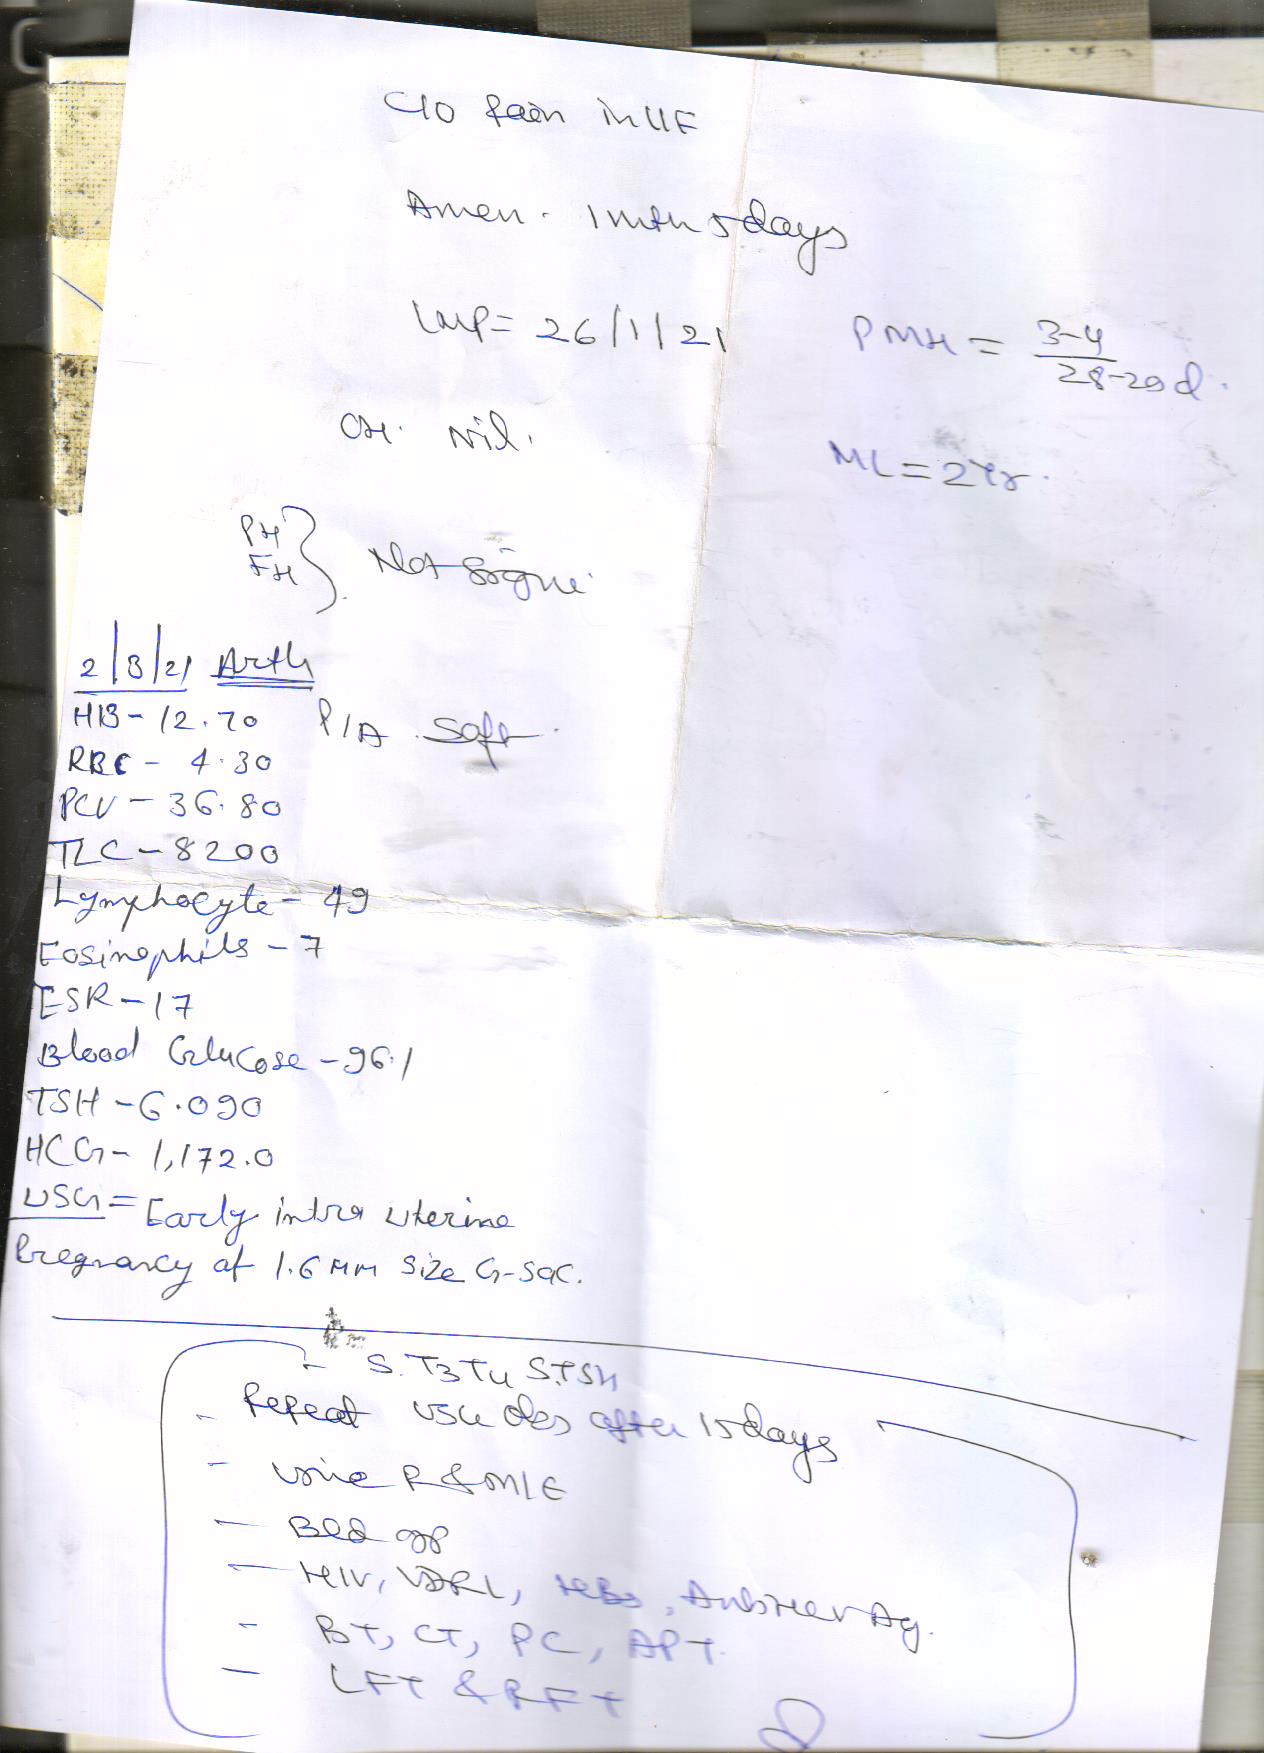 C/O Pain in LIF
Amen. 1 mth 5 days
LMP = 26/1/21
PMH = 3-4
28-29 d.
OH. Nil.
ML = 2 Yr.
PH
FH } Not Signi
2/3/21 Arth
HB - 12.70
P/A Soft
RBC - 4.30
PCV - 36.80
TLC - 8200
Lymphocyte - 49
Eosinophils - 7
ESR - 17
Blood Glucose - 96.1
TSH - 6.090
HCG - 1,172.0
USG = Early intra uterine
Pregnancy of 1.6 MM Size G-Sac.
- S. T3 T4 S.TSH
- Repeat USG Obs after 15 days
- Urine R & M/E
- Bld gp
- HIV, VDRL, HBs,
- BT, CT, PC, APT.
- LFT & RFT